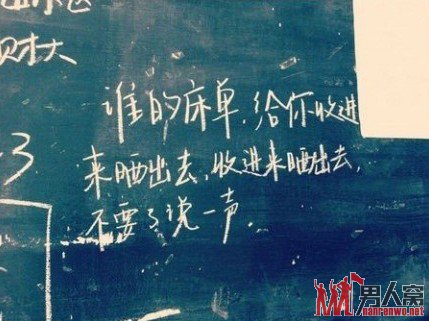 财大
谁的床单,给你收进
来晒出去,收进来晒出去,
不要了说一声.
3
男人窝
nanrenwo.net